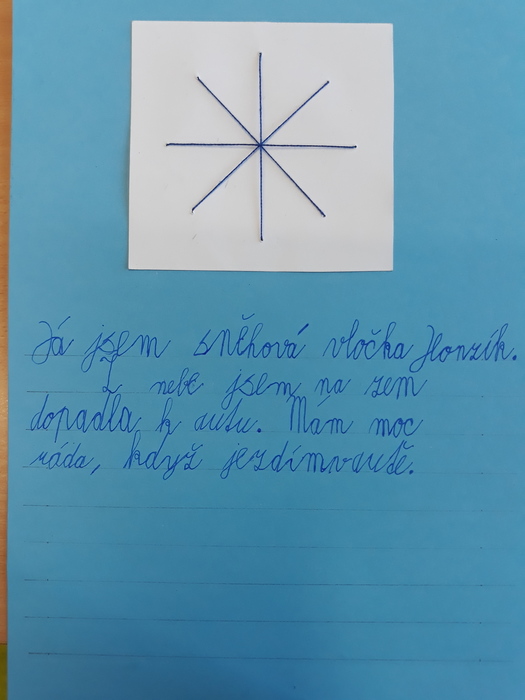 Já jsem sněhová vločka Honzík.
Z nebe jsem na zem
dopadla k autu. Mám moc
ráda, když jezdímvautě.